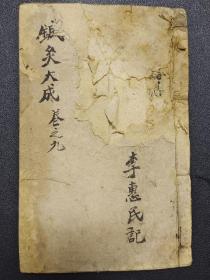 鍼灸大成 卷之九
李惠民記